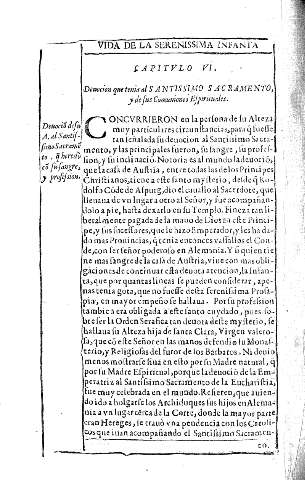 VIDA DE LA SERENISSIMA INFANTA
CAPITVLO VI.
Deuocion que tenia al SANTISSIMO SACRAMENTO,
y de sus Comuniones Espirituales.
Deuoció de su
A. al Santis-
simo Sacramē
to, q̃ heredó
con su sangre,
y profession.
CONCVRRIERON en la persona de su Alteza
muy particulares circunstancias, para q̃ fuesse
tan señalada su deuocion al Santissimo Sacra-
mento, y las principales fueron, su sangre, su profes-
sion, y su inclinació. Notoria es al mundo la deuoció,
que la casa de Austria, entre todas las de los Principes
Christianos, tiene a este santo mysterio, desde q̃ Ro-
dolfo Códe de Aspurg, dio el cauallo al Sacerdote, que
lleuaua de vn lugar a otro al Señor, y fue acompañan-
dolo a pie, hasta dexarlo en su Templo. Fineza tan li-
beralmente pagada de la mano de Dios en este Princi-
pe, y sus sucessores, que le hizo Emperador, y les ha da-
do mas Prouincias, q̃ tenia entonces vassallos el Con-
de, con ser señor poderoso en Alemania. Y si quien tie-
ne mas sangre de la casa de Austria, viue con mas obli-
gaciones de continuar esta deuota atencion, la Infan-
ta, que por quantas lineas se pueden considerar, ape-
nas tenia gota, que no fuesse desta Serenissima Prosa-
pia, en mayor empeño se hallaua. Por su profession
tambien era obligada a este santo cuydado, pues so-
bre ser la Orden Serafica tan deuota deste mysterio, se
hallaua su Alteza hija de santa Clara, Virgen valero-
sa, que có este Señor en las manos defendio su Monas-
terio, y Religiosas del furor de los Barbaros. Ni deuio
menos mostrarse fina en esto por su Madre natural, q̃
por su Madre Espiritual, porque la deuoció de la Em-
peratriz al Santissimo Sacramento de la Eucharistia,
fue muy celebrada en el mundo. Refieren, que auien-
do ido a holgarse los Archiduques sus hijos en Alema-
nia a vn lugar cerca de la Corte, donde la mayor parte
eran Hereges, se trauó vna pendencia con los Catoli-
cos que iuan acompañando el Santissimo Sacramen-
to.